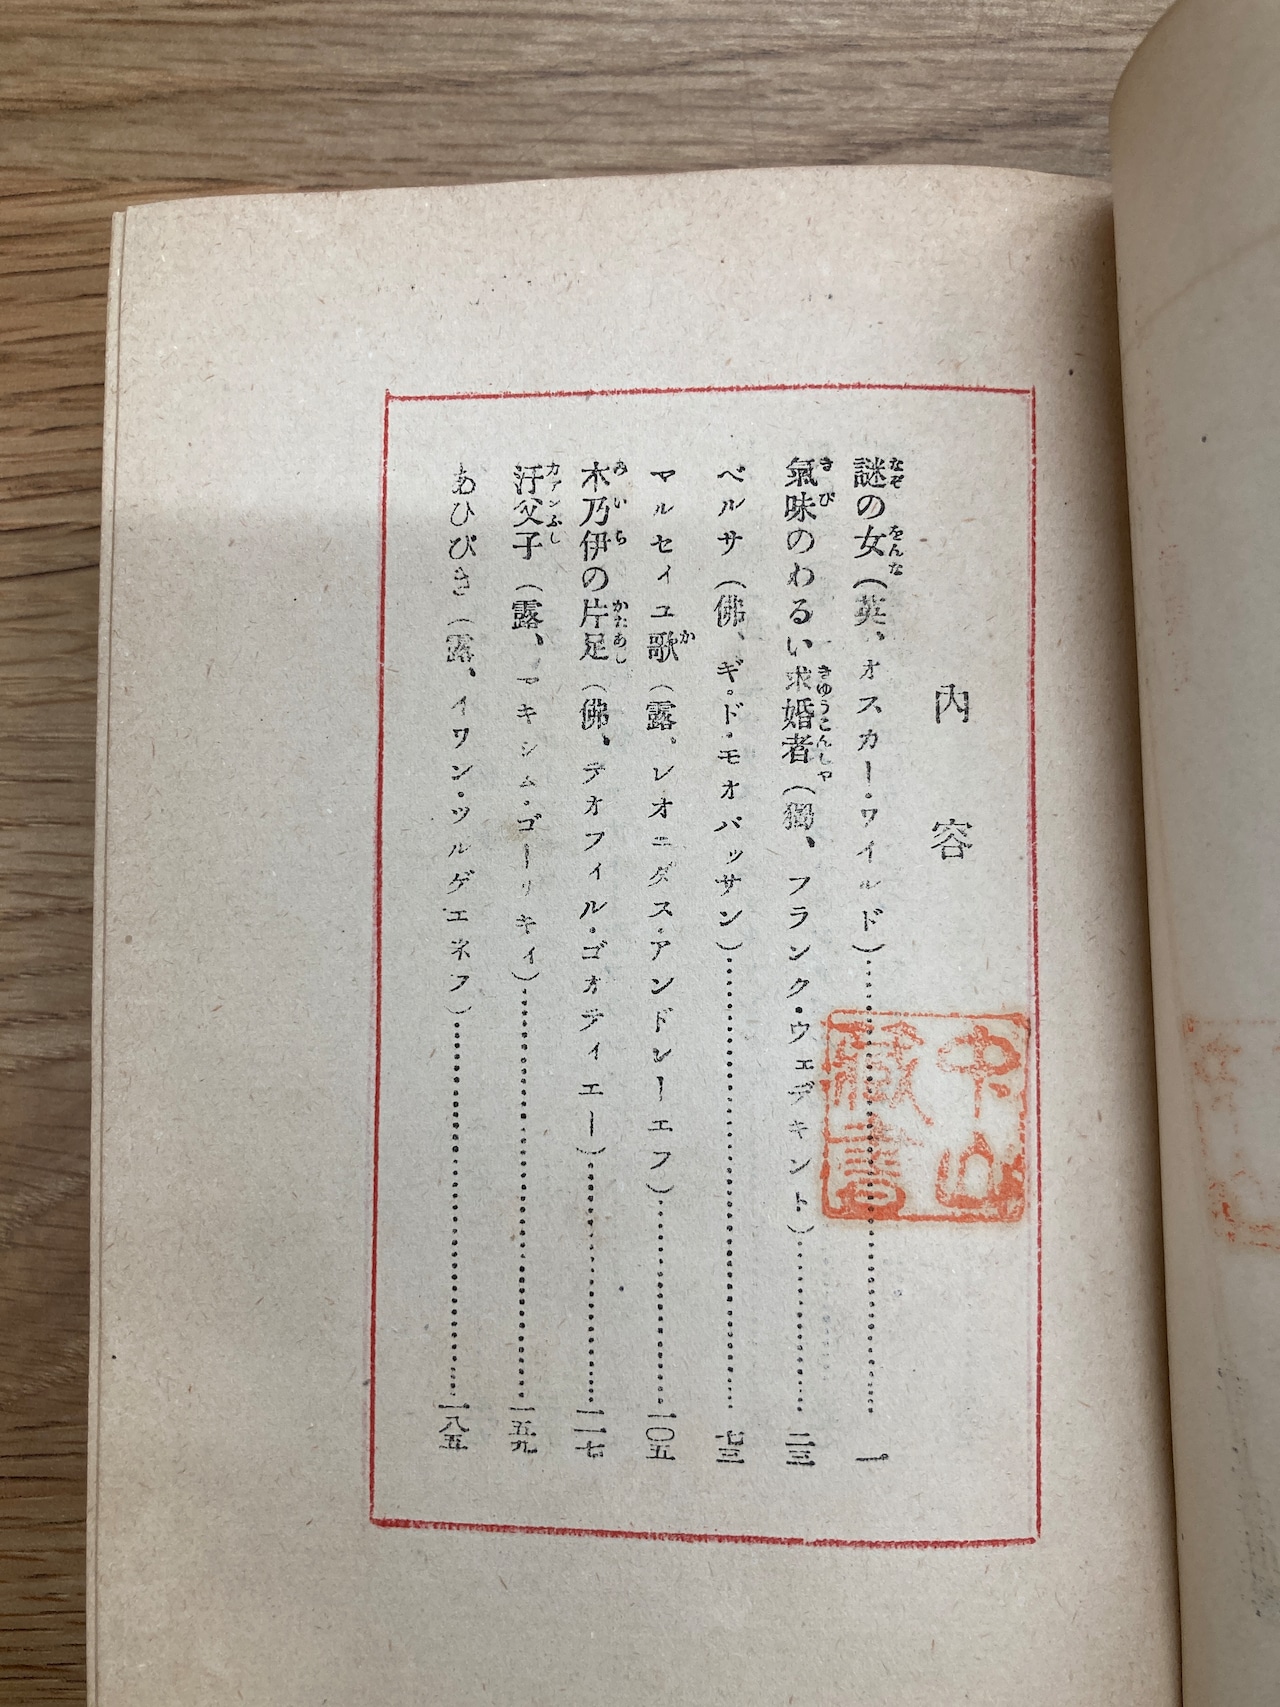 內容
謎の女（英、オスカー・ワイルド）……………………一
氣味のわるい求婚者（獨、フランク・ウェデキント）……………………二三
ベルサ（佛、ギ・ド・モオパッサン）……………………七三
マルセイユ歌（露、レオニダス・アンドレーエフ）……………………一〇五
木乃伊の片足（佛、テオフィル・ゴオティエー）……………………一一七
汗父子（露、マキシム・ゴーリキイ）……………………一五九
あひびき（露、イワン・ツルゲエネフ）……………………一八五
中山
藏書